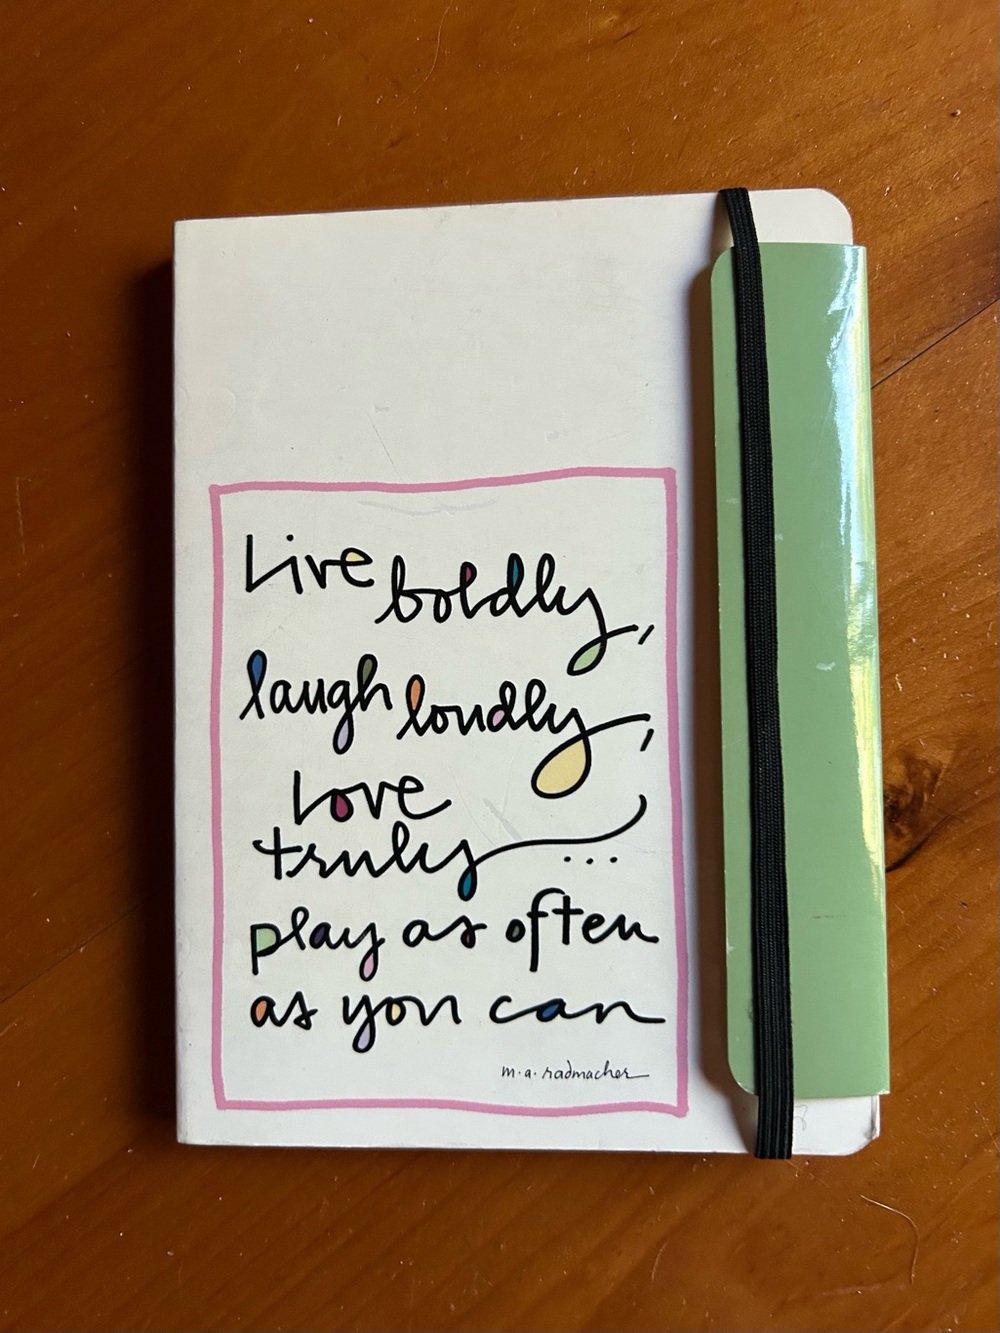 Live boldly,
laugh loudly,
Love
truly ...
play as often
as you can
m.a. radmacher